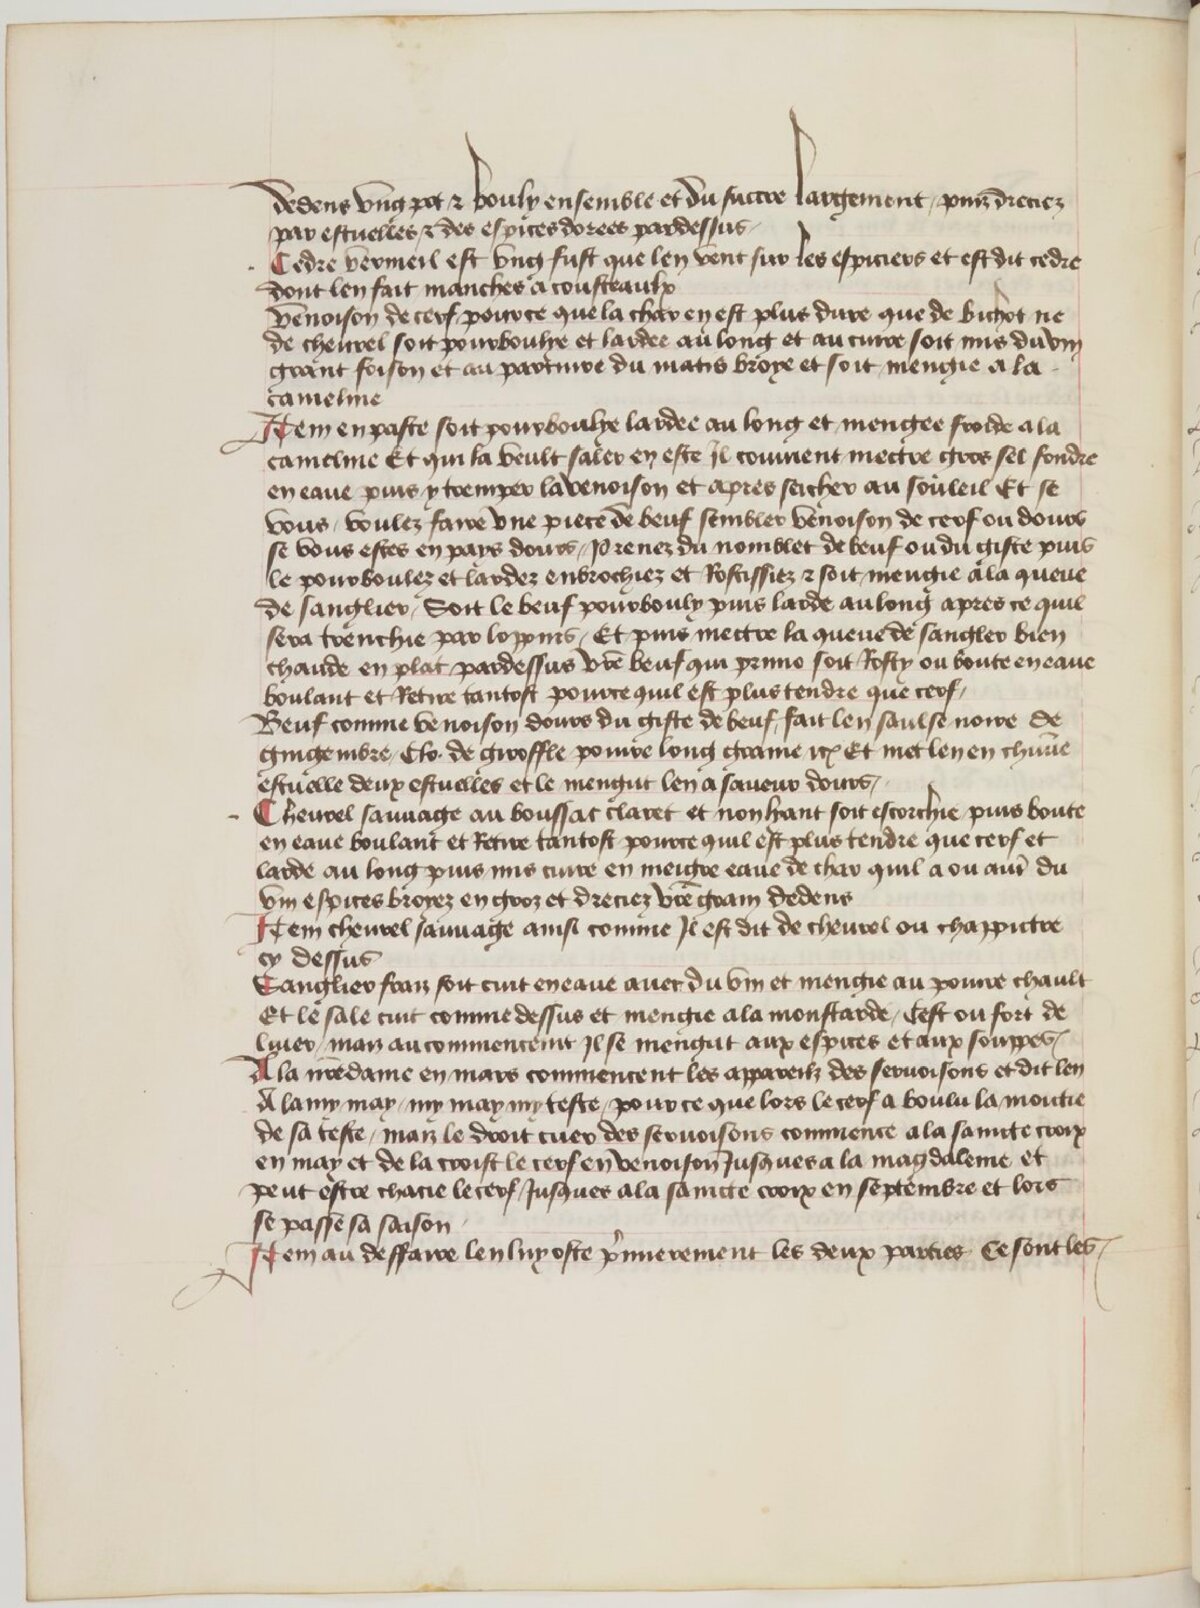 dedens ung pot & bouly ensemble et du succre largement / puiz dreciez
par escuelles & des espices dorees pardessus /
Cedre vermeil est ung fust que len vent sur les espiciers et est dit cedre
dont len fait manches a cousteaulx
Venoison de cerf pource que la char en est plus dure que de bichot ne
de chevrel soit pourboulye et lardee au long et au cuire soit mis du vin
grant foison et au parcuire du macis broye et soit mengie a la
cameline
Item en paste soit pourboulye lardee au long et mengee froide a la
cameline Et qui la veult saler en este Il convient mectre gros sel fondre
en eaue puis y tremper la venoison et apres seicher au souleil Et se
vous / voulez faire une piece de beuf sembler venoison de cerf ou dours
se vous estes en pays dours / Prenez du nomblet de beuf ou du giste puis
le pourboulez et lardez enbrochiez et Rostissiez & soit mengie a la queue
de sanglier / Soit le beuf pourbouly puis larde au long apres ce quil
sera trenchie par loppins / Et puis mectre la queue de sanglier bien
chaude en plat pardessus vre beuf qui primo soit Rosty ou boute en eaue
boulant et Retire tantost pource quil est plus tendre que cerf /
Beuf comme venoison dours du giste de beuf / fait len saulse noire de
gingembre / Clo. de giroffle poivre long graine etc Et met len en chune
escuelle deux escuelles et le mengut len a saveur dours /
Chevrel sauvage au boussac claret et non liant soit escorchie puis boute
en eaue boulant et Retire tantost pource quil est plus tendre que cerf et
larde au long puis mis cuire en meigre eaue de char quil a ou autr du
vin espices broyez en groz et dreciez vre grain dedens
Item chevrel sauvage ainsi comme Il est dit de chevrel ou chappictre
cy dessus
Sanglier fraiz soit cuit en eaue avec du vin et mengie au poivre chault
Et le sale cuit comme dessus et mengie a la moustarde / Cest ou fort de
liver / maiz au commencemt Il se mengut aux espices et aux souppes /
A la nre dame en mars commencent les appareilz des servoisons et dit len
A la my may / my may my teste / pource que lors le cerf a boulu la moitie
de sa teste / maiz le droit cuer des servoisons commence a la saincte croix
en may et de la croist le cerf en venoison Jusques a la magdaleine et
peut estre chacie le cerf / Jusques a la saincte croix en septembre et lors
se passe sa saison
Item au deffaire len luy oste primierement les deux parties Ce sont les